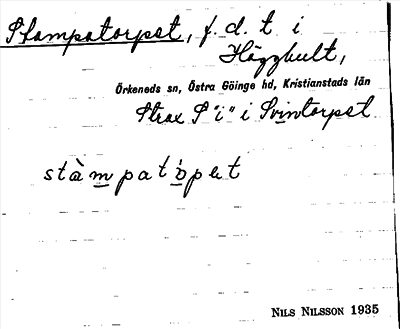 Stampatorpet, f. d. t. i
Häggbult,
Örkeneds sn, Östra Göinge hd, Kristianstads län
Strax S "i" i Svintorpet
stàmpatòpet
NILS NILSSON 1935